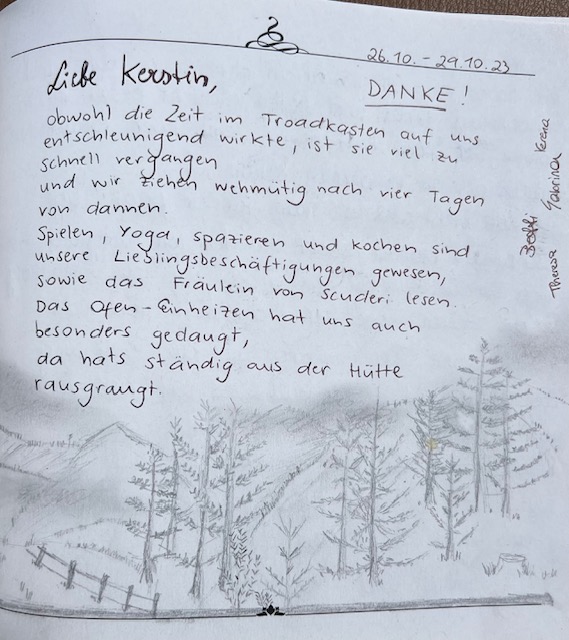 26.10. - 29.10.23
Liebe Kerstin,
DANKE!
obwohl die Zeit im Troadkasten auf uns
entschleunigend wirkte, ist sie viel zu
schnell vergangen
und wir ziehen wehmütig nach vier Tagen
von dannen.
Spielen, Yoga, spazieren und kochen sind
unsere Lieblingsbeschäftigungen gewesen,
sowie das Fräulein von Scuderi lesen.
Das Ofen-Einheizen hat uns auch
besonders gedaugt,
da hats ständig aus der Hütte
rausgraugt.
Theresa
Sabrina
Verena